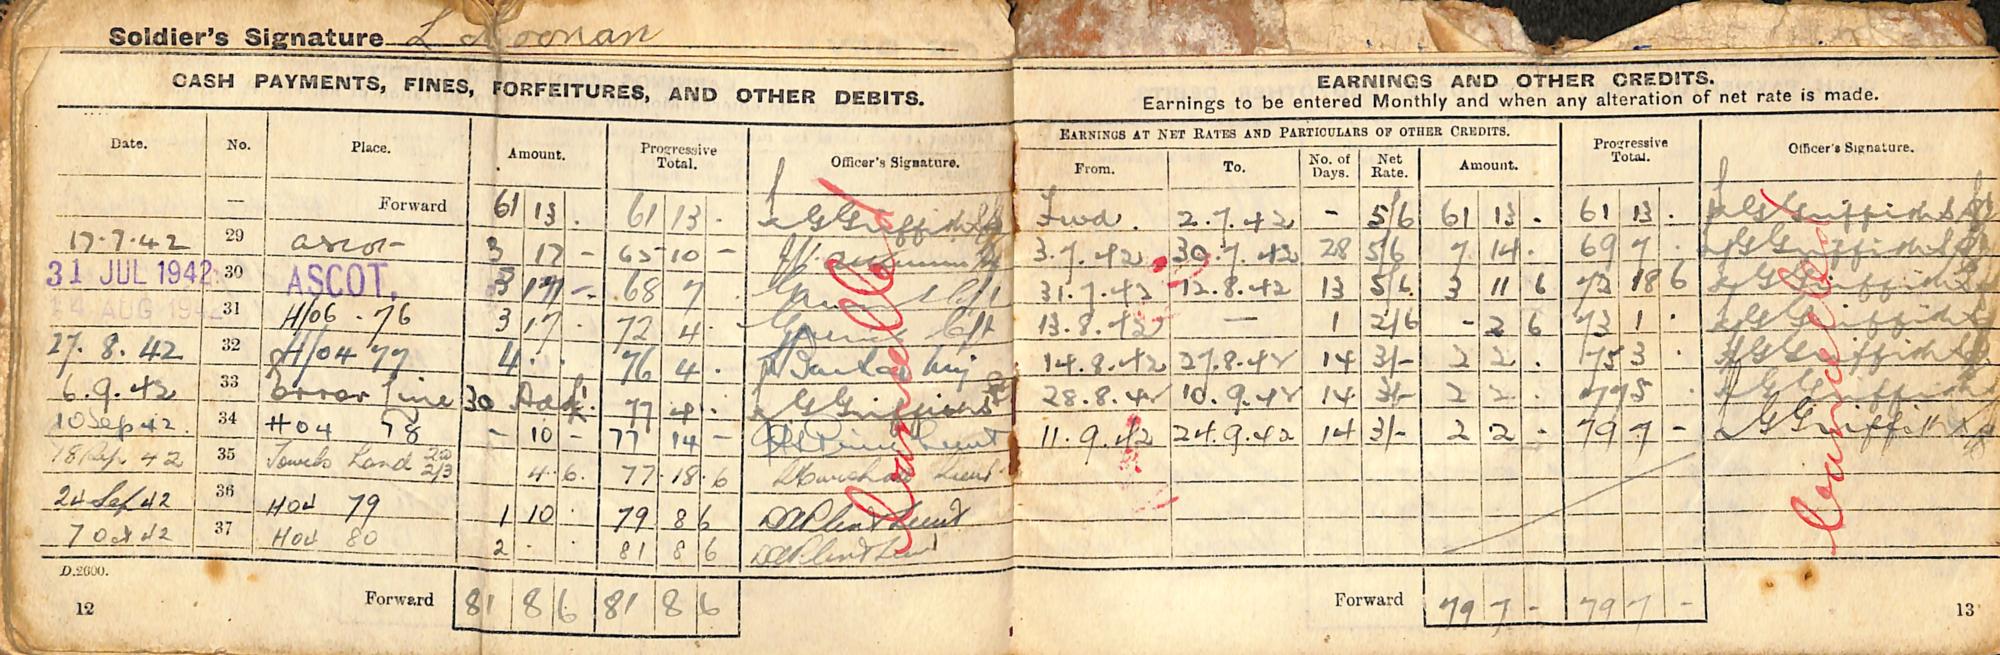 Soldier's Signature L Noonan
CASH PAYMENTS, FINES, FORFEITURES, AND OTHER DEBITS.
Date. No. Place. Amount. Progressive Total. Officer's Signature.
— Forward 61 13 . 61 13 . G Griffiths
17.7.42 29 Ascot 3 17 - 65 10 -
31 JUL 1942 30 ASCOT. 3 17 - 68 7 .
14 AUG 1942 31 H/06 . 76 3 17 . 72 4 .
27.8.42 32 H/04 77 4 . . 76 4 .
6.9.42 33 Error line 30 Adj. 77 4 . G Griffiths
10 Sep 42. 34 H04 78 - 10 - 77 14 - Lieut
18 Sep 42 35 Land 4 . 6. 77.18.6 Lieut
24 Sep 42 36 H04 79 1 10 . 79 8 6 Lieut
7 Oct 42 37 H04 80 2 . . 81 8 6 Lieut
D.2600.
Forward 81 8 6 81 8 6
12
Cancelled
EARNINGS AND OTHER CREDITS.
Earnings to be entered Monthly and when any alteration of net rate is made.
EARNINGS AT NET RATES AND PARTICULARS OF OTHER CREDITS. Progressive Total. Officer's Signature.
From. To. No. of Days. Net Rate. Amount.
Fwd. 2.7.42 - 5/6 61 13 . 61 13 . G Griffiths
3.7.42 30.7.42 28 5/6 7 14 . 69 7 . G Griffiths
31.7.42 12.8.42 13 5/6 3 11 6 72 18 6 G Griffiths
13.8.42 — 1 2/6 - 2 6 73 1 . G Griffiths
14.8.42 27.8.42 14 3/- 2 2 . 75 3 . G Griffiths
28.8.42 10.9.42 14 3/- 2 2 . 77 5 . G Griffiths
11.9.42 24.9.42 14 3/- 2 2 - 79 7 - G Griffiths
Forward 79 7 - 79 7 -
13
Cancelled